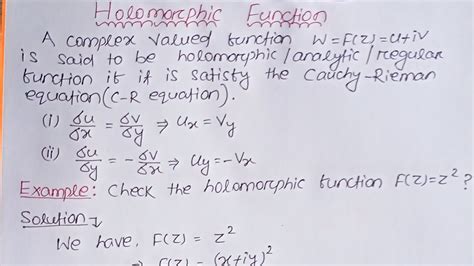 Holomorphic Function
A complex valued function W=F(Z)=u+iv
is said to be holomorphic/analytic/regular
function if it is satisfy the Cauchy-Rieman
equation(C-R equation).
(i) σu/σx = σv/σy ⇒ ux = vy
(ii) σu/σy = -σv/σx ⇒ uy = -vx
Example: Check the holomorphic function F(Z)=Z²?
Solution
We have, F(Z) = Z²
⇒ F(Z) = (x+iy)²